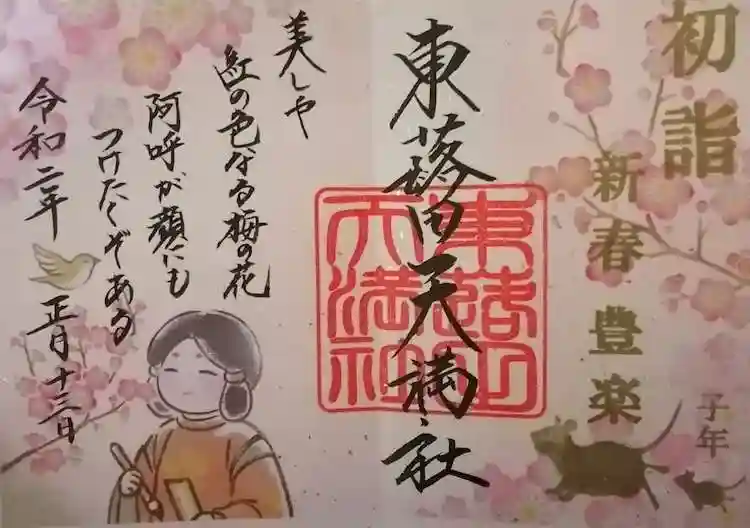 初詣
新春豊楽
子年
東蕗田天満社
東蕗田天満社
美しや
紅の色なる梅の花
阿呼が顔にも
つけたくぞある
令和二年
正月十三日